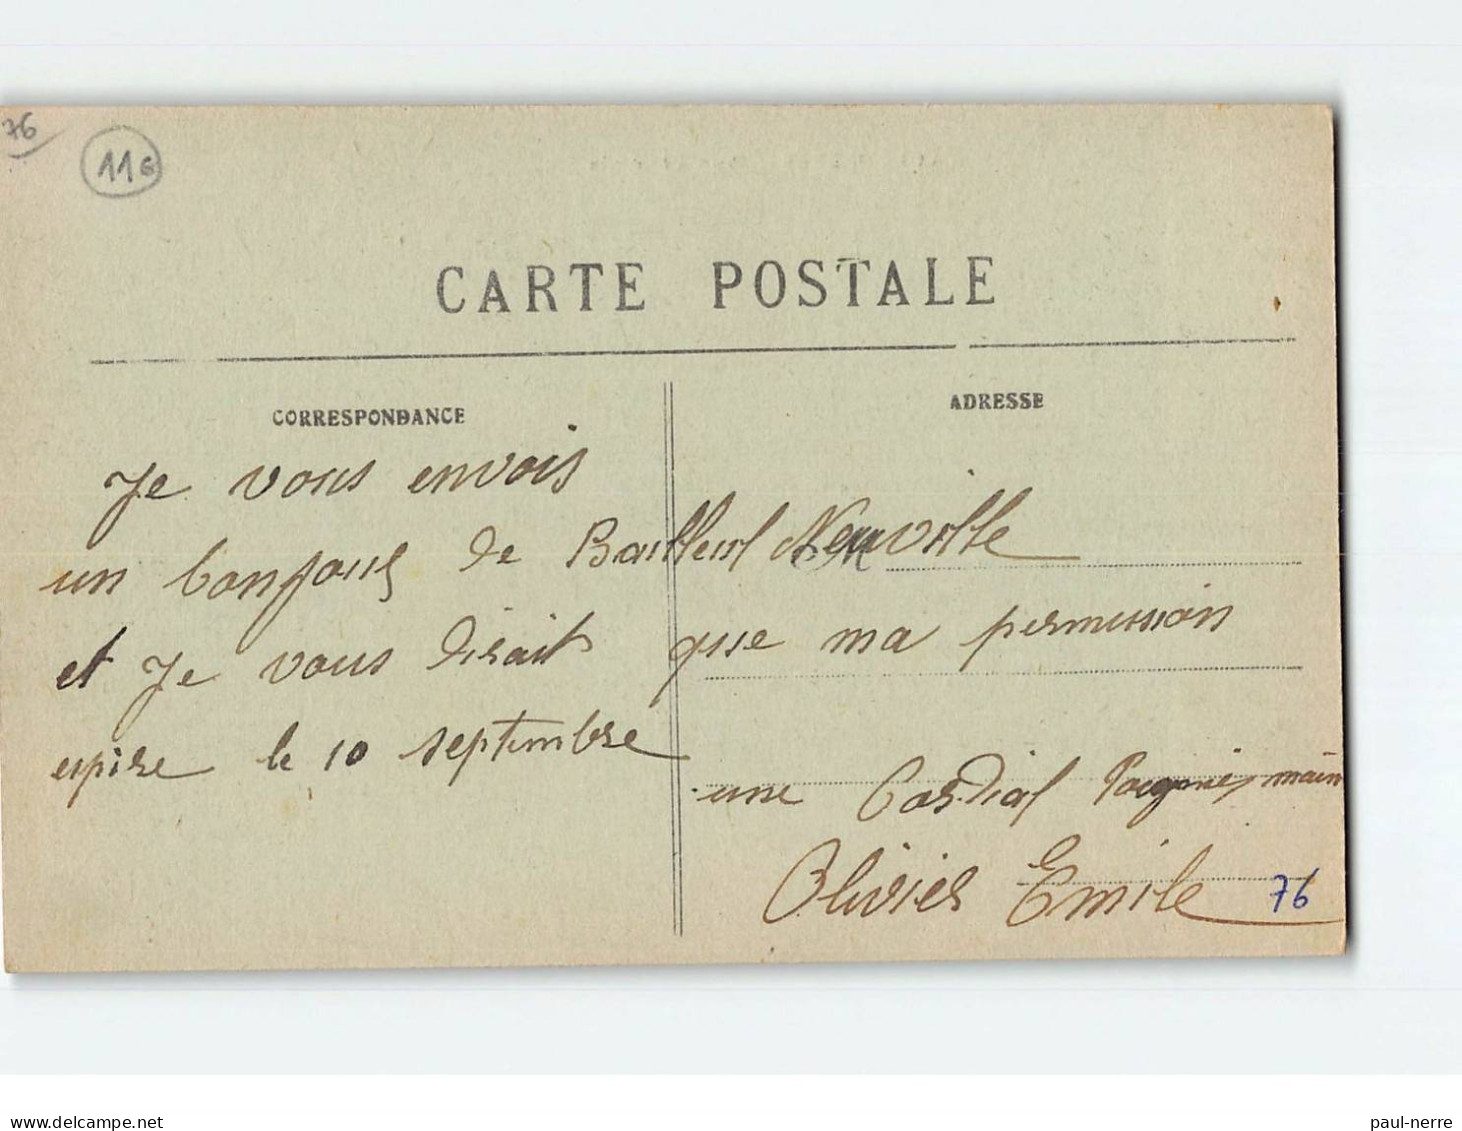 76
116
CARTE POSTALE
CORRESPONDANCE
ADRESSE
Je vous envois
un bonjour de Bailleul Neuville
et Je vous dirait que ma permission
expire le 10 septembre
une Cordial Poignies main
Olivier Emile
76
paul-nerre